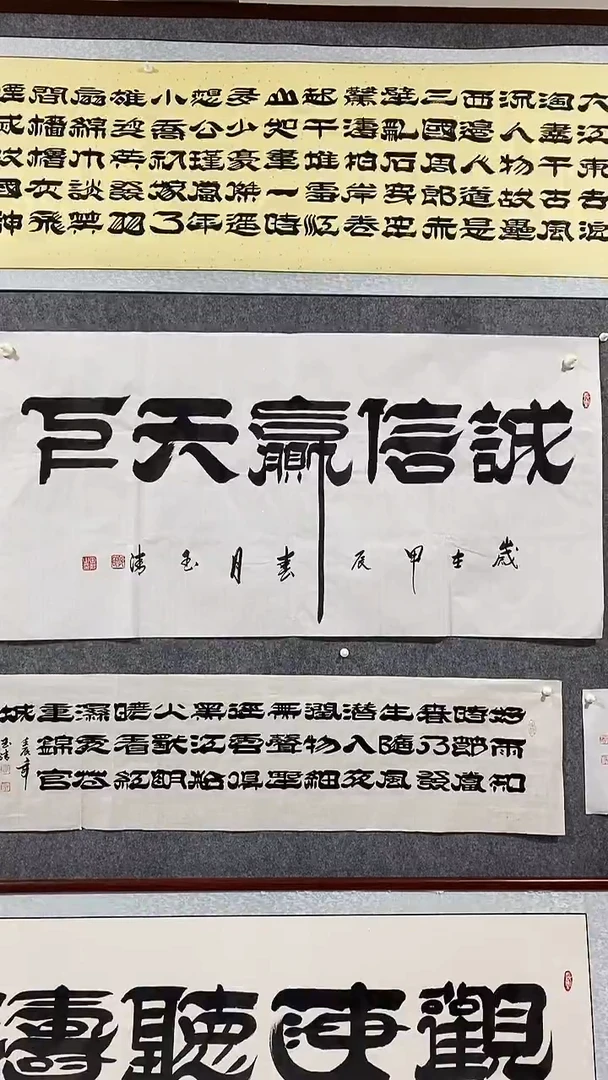 大江東去浪
淘盡千古風
流人物故壘
西邊人道是
三國周郎赤
壁亂石穿空
驚濤拍岸卷
起千堆雪江
山如畫一時
多少豪傑遥
想公瑾當年
小喬初嫁了
雄姿英發羽
扇綸巾談笑
間檣櫓灰飛
煙滅故國神
誠信贏天下
歲在甲辰春月玉清
好雨知
時節當
春乃發
生隨風
潛入夜
潤物細
無聲野
徑雲俱
黑江船
火獨明
曉看紅
濕處花
重錦官
城
觀海聽濤